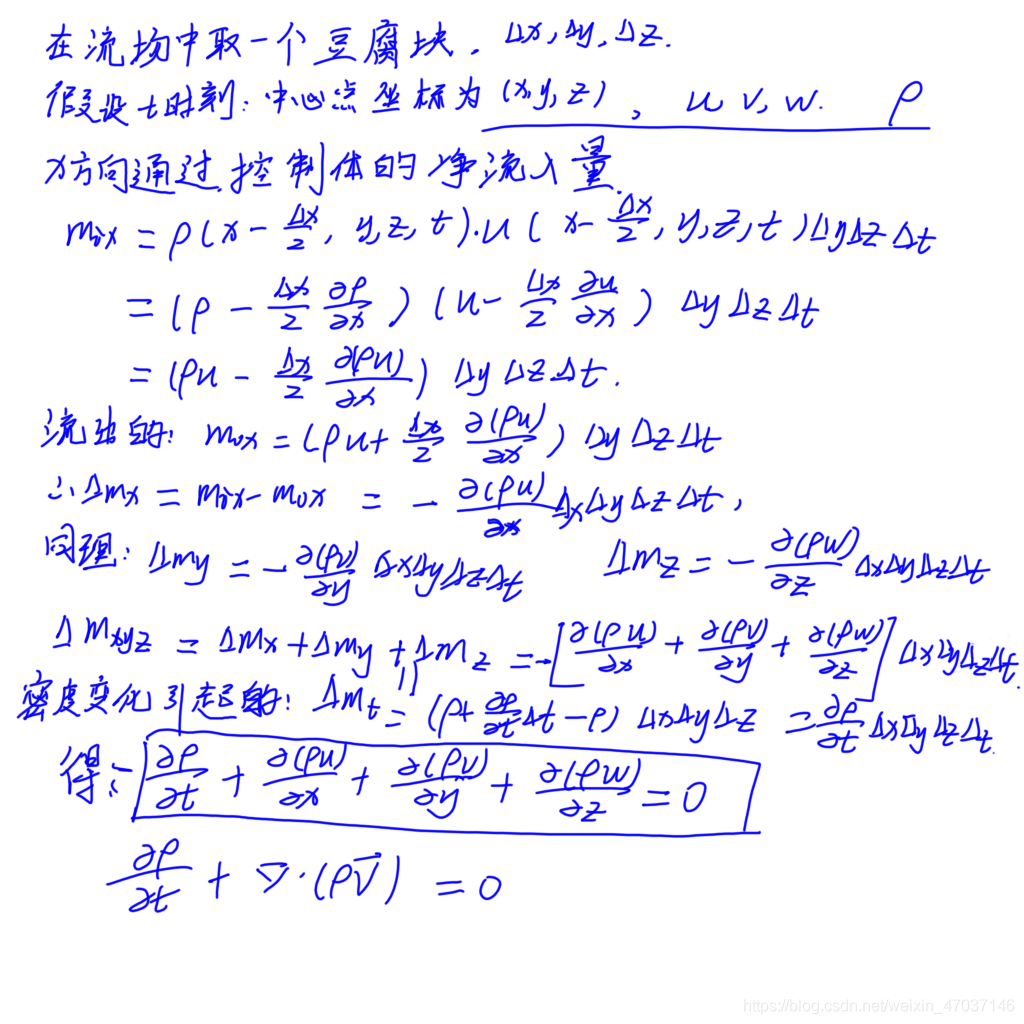 在流场中取一个豆腐块. Δx, Δy, Δz.
假设t时刻: 中心点坐标为 (x,y,z), u v, w. ρ
x方向通过控制体的净流入量.
mix = ρ(x - Δx/2, y, z, t)·u(x - Δx/2, y, z, t)ΔyΔzΔt
= (ρ - Δx/2 ∂ρ/∂x)(u - Δx/2 ∂u/∂x) ΔyΔzΔt
= (ρu - Δx/2 ∂(ρu)/∂x) ΔyΔzΔt.
流出的: mox = (ρu + Δx/2 ∂(ρu)/∂x) ΔyΔzΔt
∴Δmx = mix - mox = - ∂(ρu)/∂x ΔxΔyΔzΔt,
同理: Δmy = - ∂(ρv)/∂y ΔxΔyΔzΔt Δmz = - ∂(ρw)/∂z ΔxΔyΔzΔt
Δmxyz = Δmx + Δmy + Δmz = -[∂(ρu)/∂x + ∂(ρv)/∂y + ∂(ρw)/∂z] ΔxΔyΔzΔt.
密度变化引起的: Δmt = (ρ + ∂ρ/∂t Δt - ρ) ΔxΔyΔz = ∂ρ/∂t ΔxΔyΔzΔt.
得: ∂ρ/∂t + ∂(ρu)/∂x + ∂(ρv)/∂y + ∂(ρw)/∂z = 0
∂ρ/∂t + ∇·(ρV⃗) = 0
https://blog.csdn.net/weixin_47037146